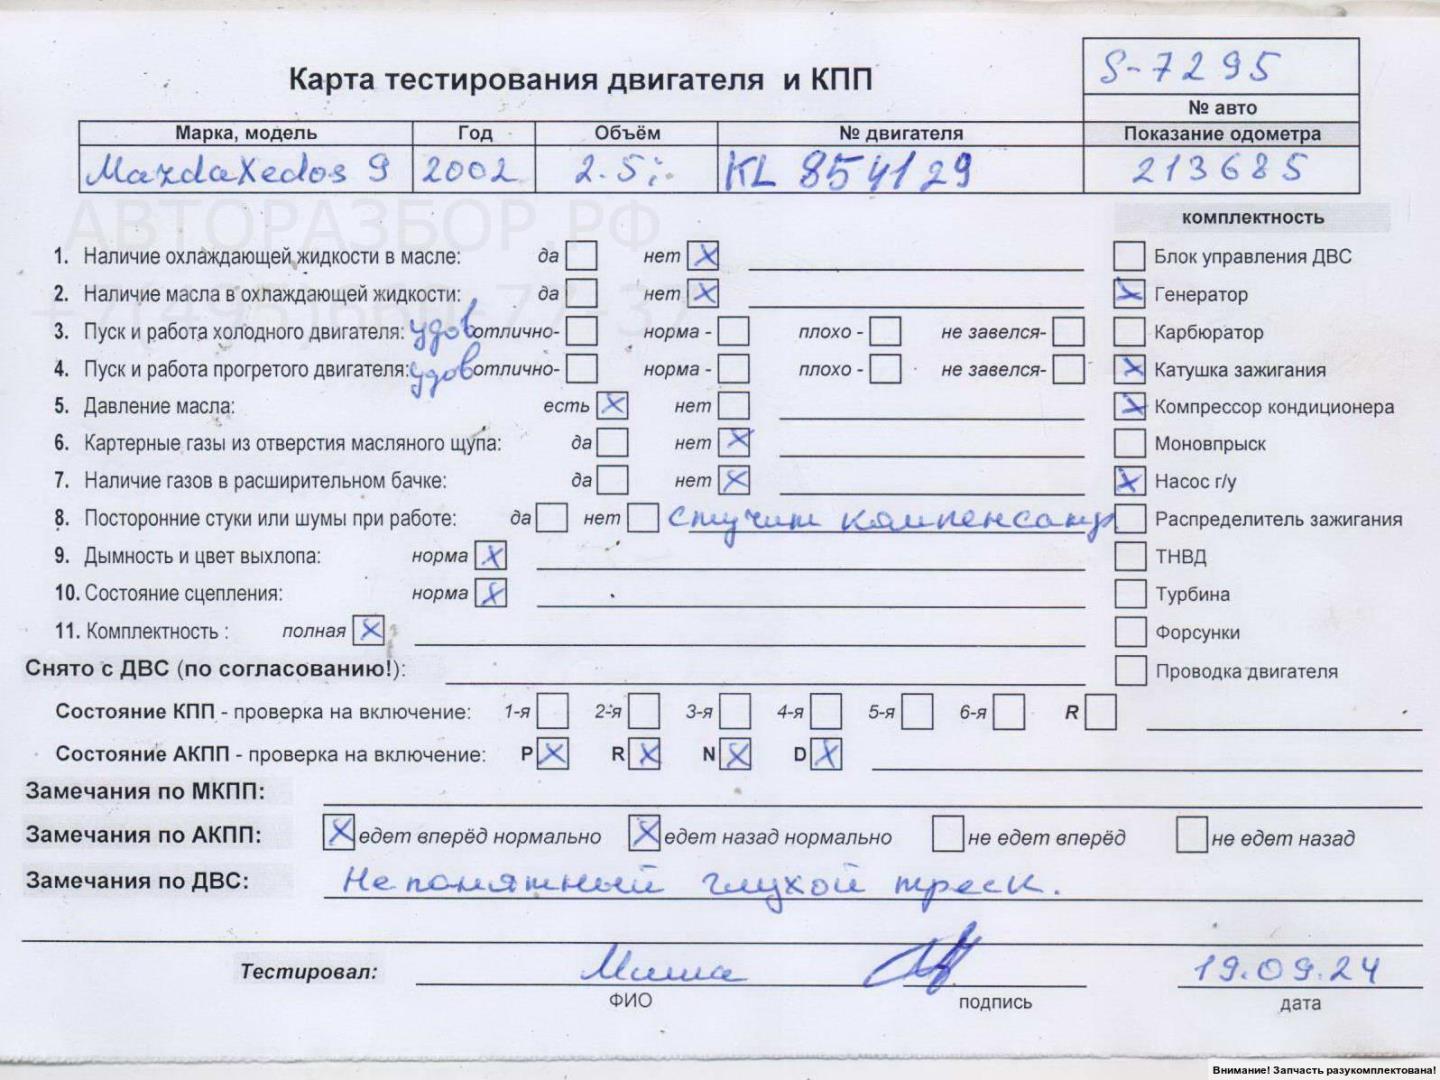 S-7295
Карта тестирования двигателя и КПП
№ авто
Марка, модель Год Объём № двигателя Показание одометра
MazdaXedos 9 2002 2.5i KL 854129 213685
АВТОРАЗБОР.РФ
комплектность
1. Наличие охлаждающей жидкости в масле: да нет X Блок управления ДВС
+7(495)660-77-37
2. Наличие масла в охлаждающей жидкости: да нет X X Генератор
3. Пуск и работа холодного двигателя: удов отлично- норма - плохо - не завелся- Карбюратор
4. Пуск и работа прогретого двигателя: удов отлично- норма - плохо - не завелся- X Катушка зажигания
5. Давление масла: есть X нет X Компрессор кондиционера
6. Картерные газы из отверстия масляного щупа: да нет X Моновпрыск
7. Наличие газов в расширительном бачке: да нет X X Насос г/у
8. Посторонние стуки или шумы при работе: да нет стучит компенсатр Распределитель зажигания
9. Дымность и цвет выхлопа: норма X ТНВД
10. Состояние сцепления: норма X Турбина
11. Комплектность : полная X Форсунки
Снято с ДВС (по согласованию!): Проводка двигателя
Состояние КПП - проверка на включение: 1-я 2-я 3-я 4-я 5-я 6-я R
Состояние АКПП - проверка на включение: P X R X N X D X
Замечания по МКПП:
Замечания по АКПП: X едет вперёд нормально X едет назад нормально не едет вперёд не едет назад
Замечания по ДВС: Не понятный глухой треск.
Тестировал: Миша 19.09.24
ФИО подпись дата
Внимание! Запчасть разукомплектована!